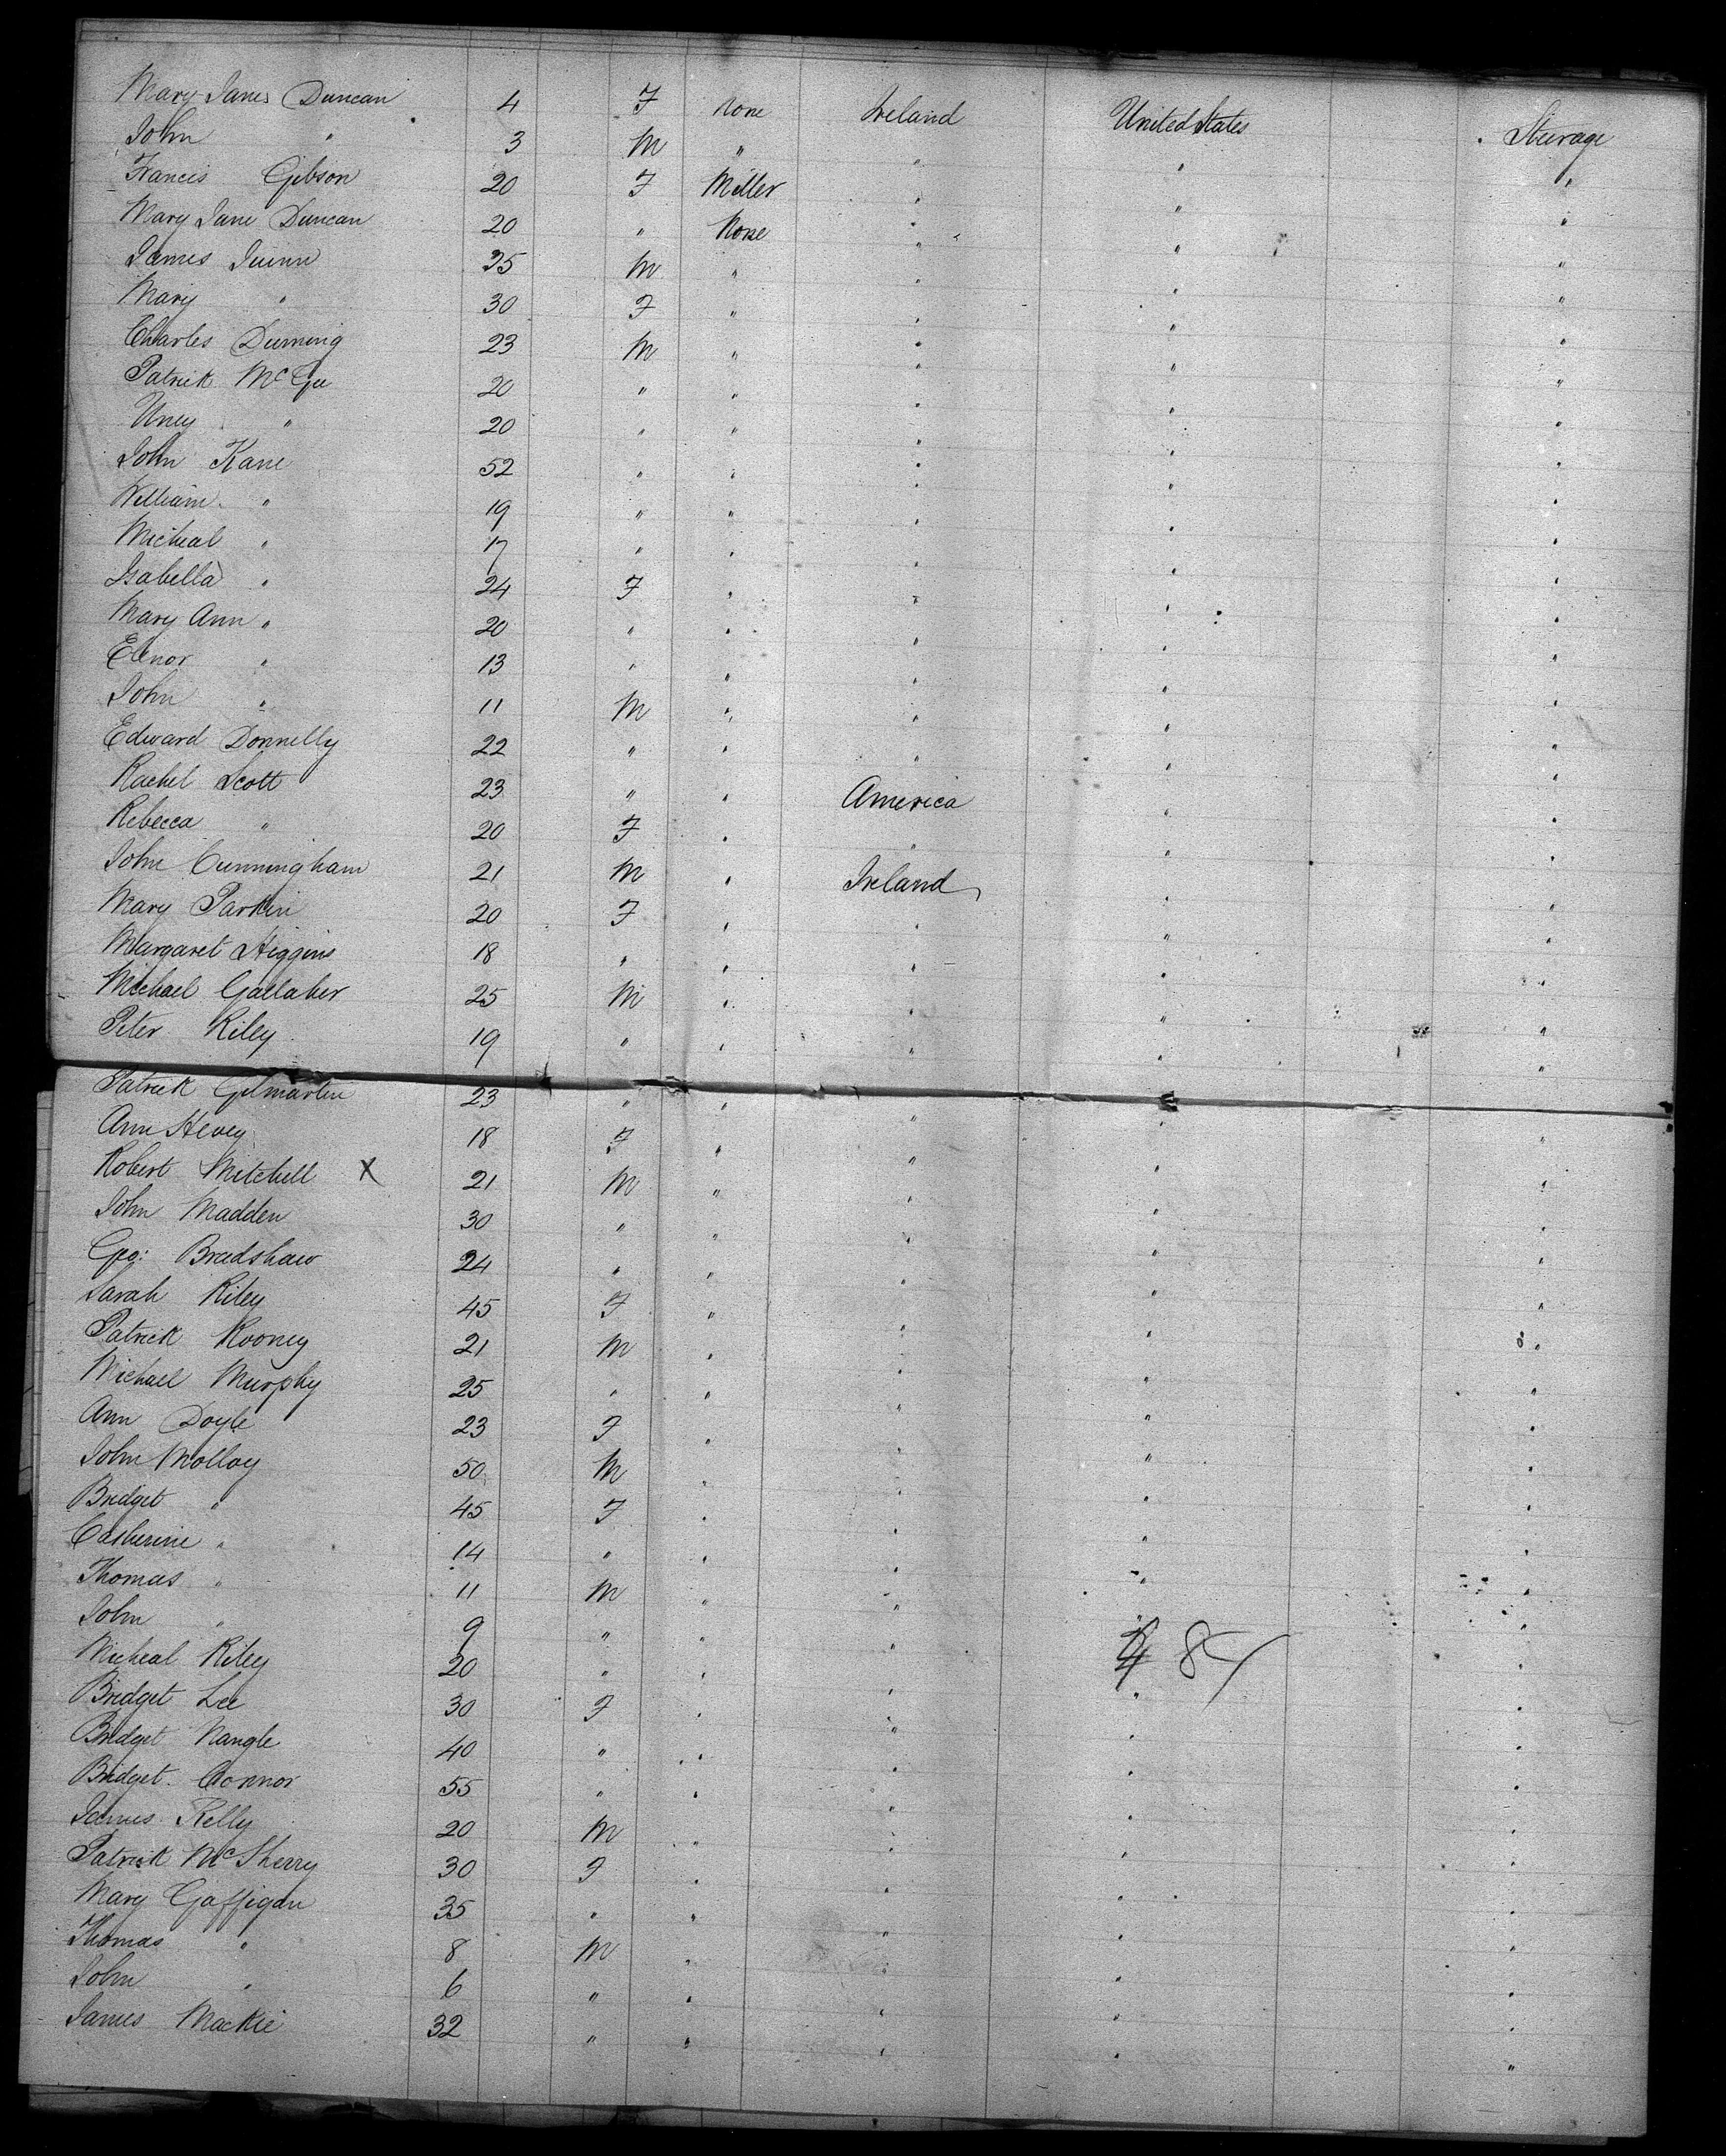 Mary Jane Duncan 4 F None Ireland United States Steerage
John " 3 M " " " "
Francis Gibson 20 F Miller " " "
Mary Jane Duncan 20 " None " " "
James Quinn 35 M " " " "
Mary " 30 F " " " "
Charles Durning 23 M " " " "
Patrick McGee 20 " " " " "
Uney " 20 " " " " "
John Kane 52 " " " " "
William " 19 " " " " "
Micheal " 17 " " " " "
Isabella " 24 F " " " "
Mary Ann " 20 " " " " "
Elenor " 13 " " " " "
John " 11 M " " " "
Edward Donnelly 22 " " " " "
Rachel Scott 23 " " America " "
Rebecca " 20 F " " " "
John Cunningham 21 M " Ireland " "
Mary Parkin 20 F " " " "
Margaret Higgins 18 " " " " "
Michael Gallaher 25 M " " " "
Peter Riley 19 " " " " "
Patrick Gilmartin 23 " " " " "
Ann Hevey 18 F " " " "
Robert Mitchell X 21 M " " " "
John Madden 30 " " " " "
Geo: Bradshaw 24 " " " " "
Sarah Riley 45 F " " " "
Patrick Rooney 21 M " " " "
Michael Murphy 25 " " " " "
Ann Doyle 23 F " " " "
John Molloy 50 M " " " "
Bridget " 45 F " " " "
Catherine " 14 " " " " "
Thomas " 11 M " " " "
John " 9 " " " " "
Micheal Riley 20 " " " " "
Bridget Lee 30 F " " " "
Bridget Nangle 40 " " " " "
Bridget Connor 55 " " " " "
James Kelly 20 M " " " "
Patrick McSherry 30 F " " " "
Mary Gaffigan 35 " " " " "
Thomas " 8 M " " " "
John " 6 " " " " "
James Mackie 32 " " " " "